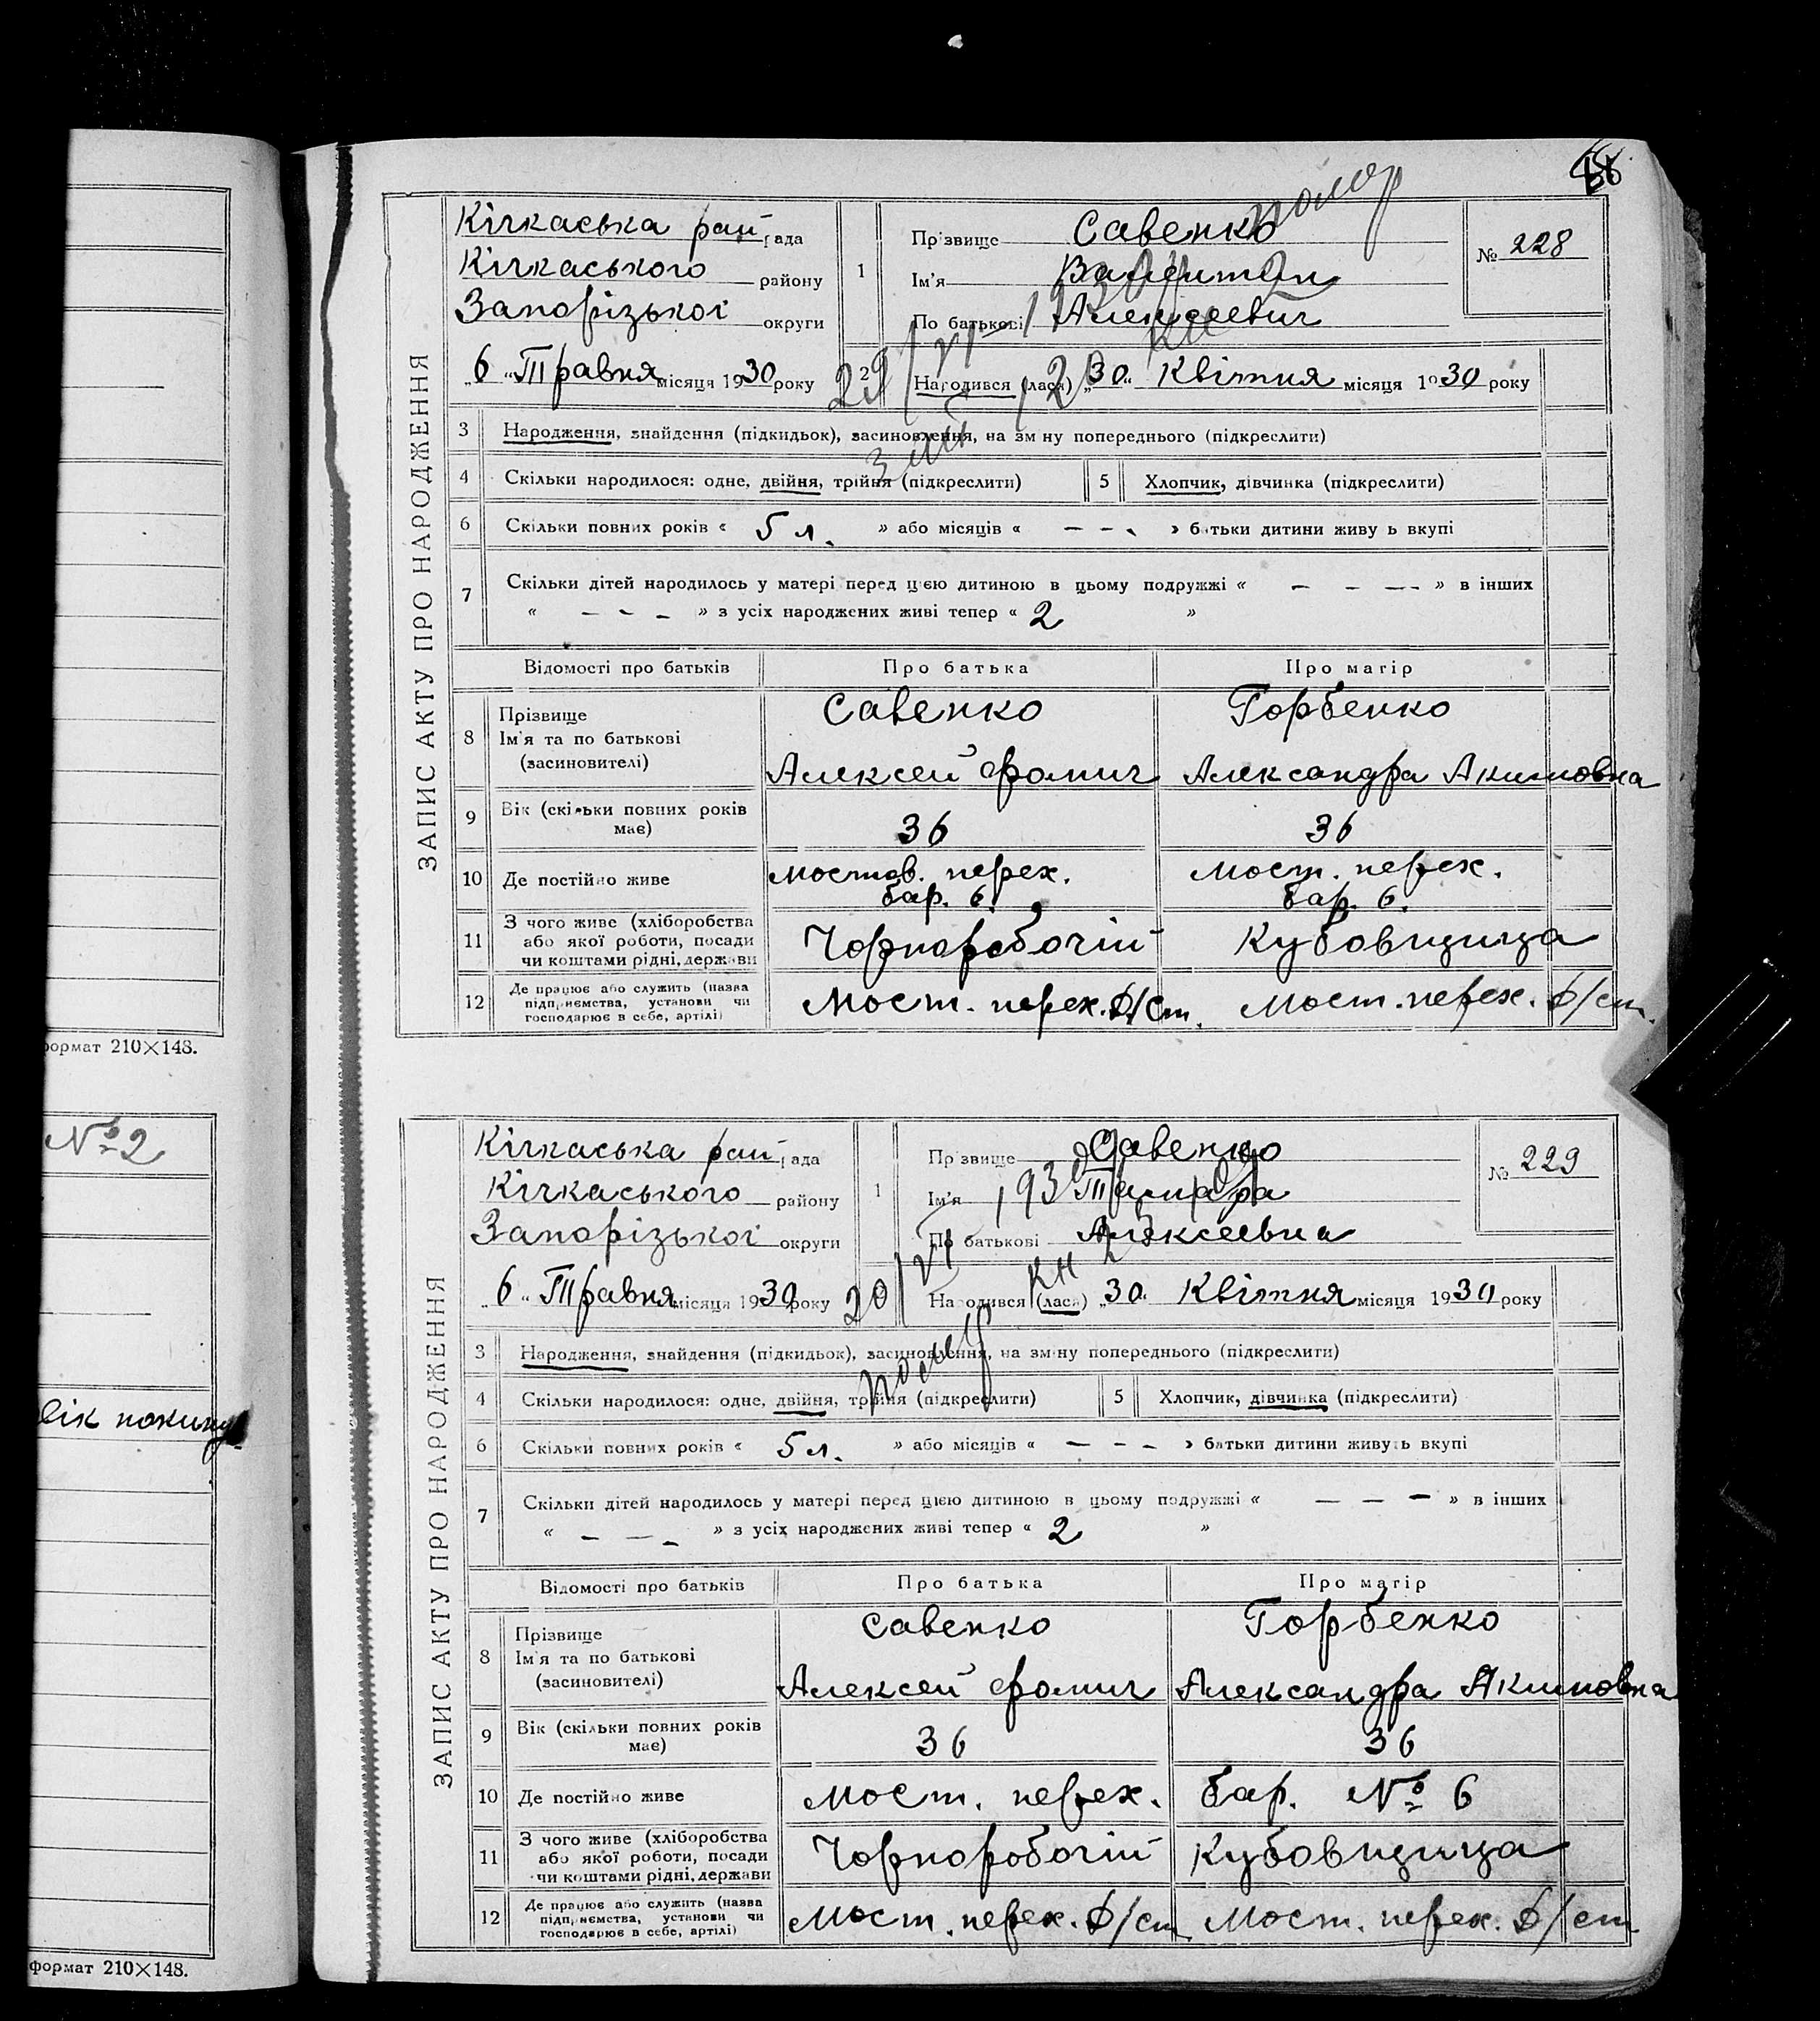 228
Кічкаська рай рада
Кічкаського району
Запорізької округи
„6“ Травня місяця 1930 року
ЗАПИС АКТУ ПРО НАРОДЖЕННЯ
1
Прізвище Савенко
Ім'я Валентин
По батькові Алексеевич
№ 228
помер
2 Народився (лася) „30“ Квітня місяця 1930 року
3 Народження, знайдення (підкидьок), засиновлення, на зміну попереднього (підкреслити)
4 Скільки народилося: одне, двійня, трійня (підкреслити)
5 Хлопчик, дівчинка (підкреслити)
6 Скільки повних років « 5 л. » або місяців « – – - » батьки дитини живуть вкупі
7 Скільки дітей народилось у матері перед цією дитиною в цьому подружжі « – – — » в інших
« – – – » з усіх народжених живі тепер « 2 »
Відомості про батьків Про батька Про матір
8 Прізвище Савенко Горбенко
Ім'я та по батькові
(засиновителі) Алексей Фомич Александра Акимовна
9 Вік (скільки повних років має) 36 36
10 Де постійно живе Мостов. перех. бар. 6. Мост. перех. бар. 6.
11 З чого живе (хліборобства
або якої роботи, посади
чи коштами рідні, держави Чорноробочій Кубовщица
12 Де працює або служить (назва
підприємства, установи чи
господарює в себе, артілі) Мост. перех. Д/ст. Мост. перех. Д/ст.
формат 210×148.
№ 2
Кічкаська рай рада
Кічкаського району
Запорізької округи
„6“ Травня місяця 1930 року
ЗАПИС АКТУ ПРО НАРОДЖЕННЯ
1
Прізвище Савенко
Ім'я Тамара
По батькові Алексеевна
№ 229
20/VI 1930
КН 2
помер
Народився (лася) „30“ Квітня місяця 1930 року
3 Народження, знайдення (підкидьок), засиновлення, на зміну попереднього (підкреслити)
4 Скільки народилося: одне, двійня, трійня (підкреслити)
5 Хлопчик, дівчинка (підкреслити)
6 Скільки повних років « 5 л. » або місяців « – – – » батьки дитини живуть вкупі
7 Скільки дітей народилось у матері перед цією дитиною в цьому подружжі « — – – » в інших
« – — – » з усіх народжених живі тепер « 2 »
Відомості про батьків Про батька Про матір
8 Прізвище Савенко Горбенко
Ім'я та по батькові
(засиновителі) Алексей Фомич Александра Акимовна
9 Вік (скільки повних років має) 36 36
10 Де постійно живе Мост. перех. бар. № 6
11 З чого живе (хліборобства
або якої роботи, посади
чи коштами рідні, держави Чорноробочій Кубовщица
12 Де працює або служить (назва
підприємства, установи чи
господарює в себе, артілі) Мост. перех. Д/ст Мост. перех. Д/ст
формат 210×148.